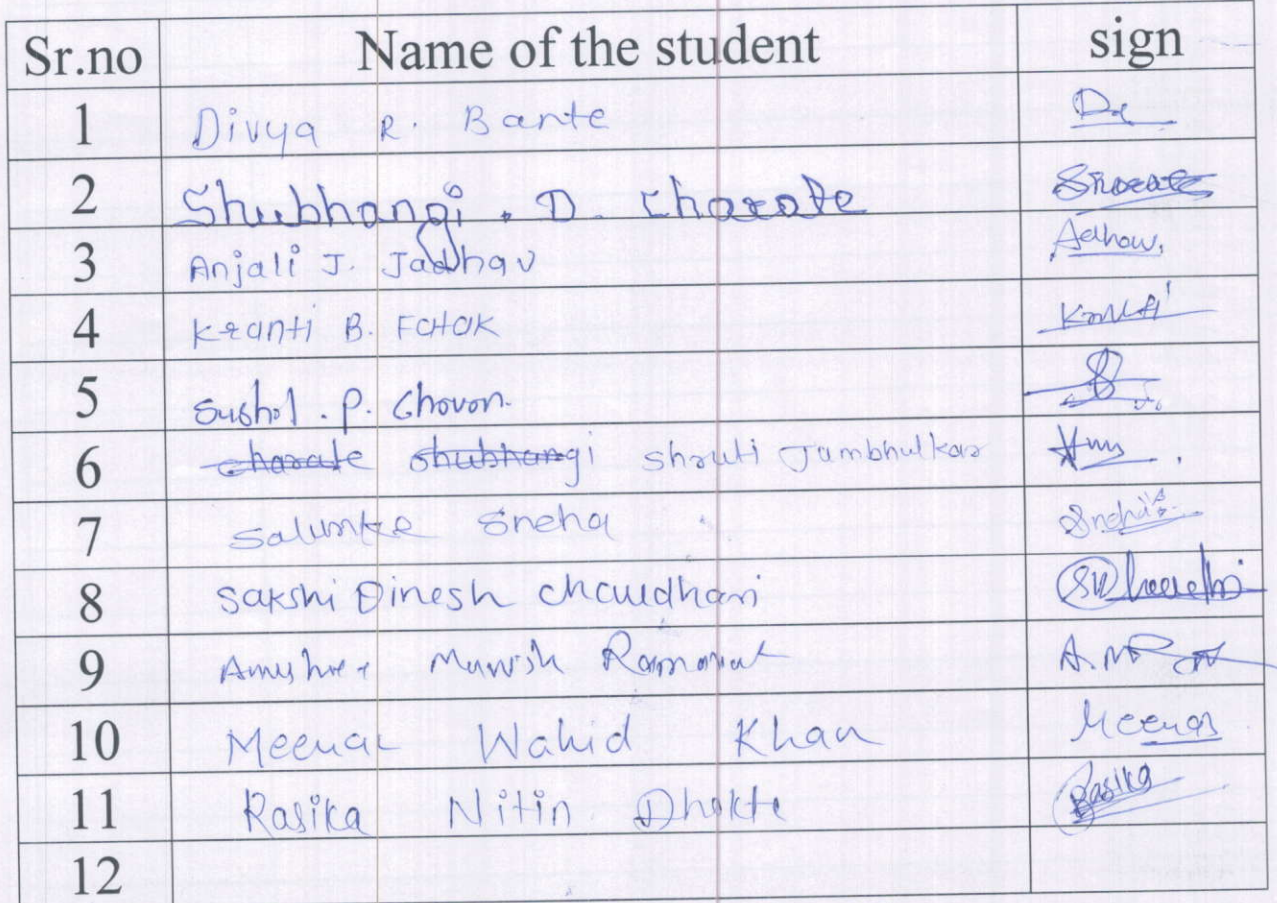 Sr.no Name of the student sign
1 Divya R. Bante
2 Shubhangi . D. Charate
3 Anjali J. Jadhav Jadhav.
4 Kranti B. Fatak Kranti
5 Sushil . P. Chavan.
6 charate shubhangi Shruti Jambhulkar
7 Salunke Sneha Sneha
8 Sakshi Dinesh Chaudhari
9 Anushree Manish Ramanat
10 Meenaz Wahid Khan Meenaz
11 Rasika Nitin Dhakte Rasika
12